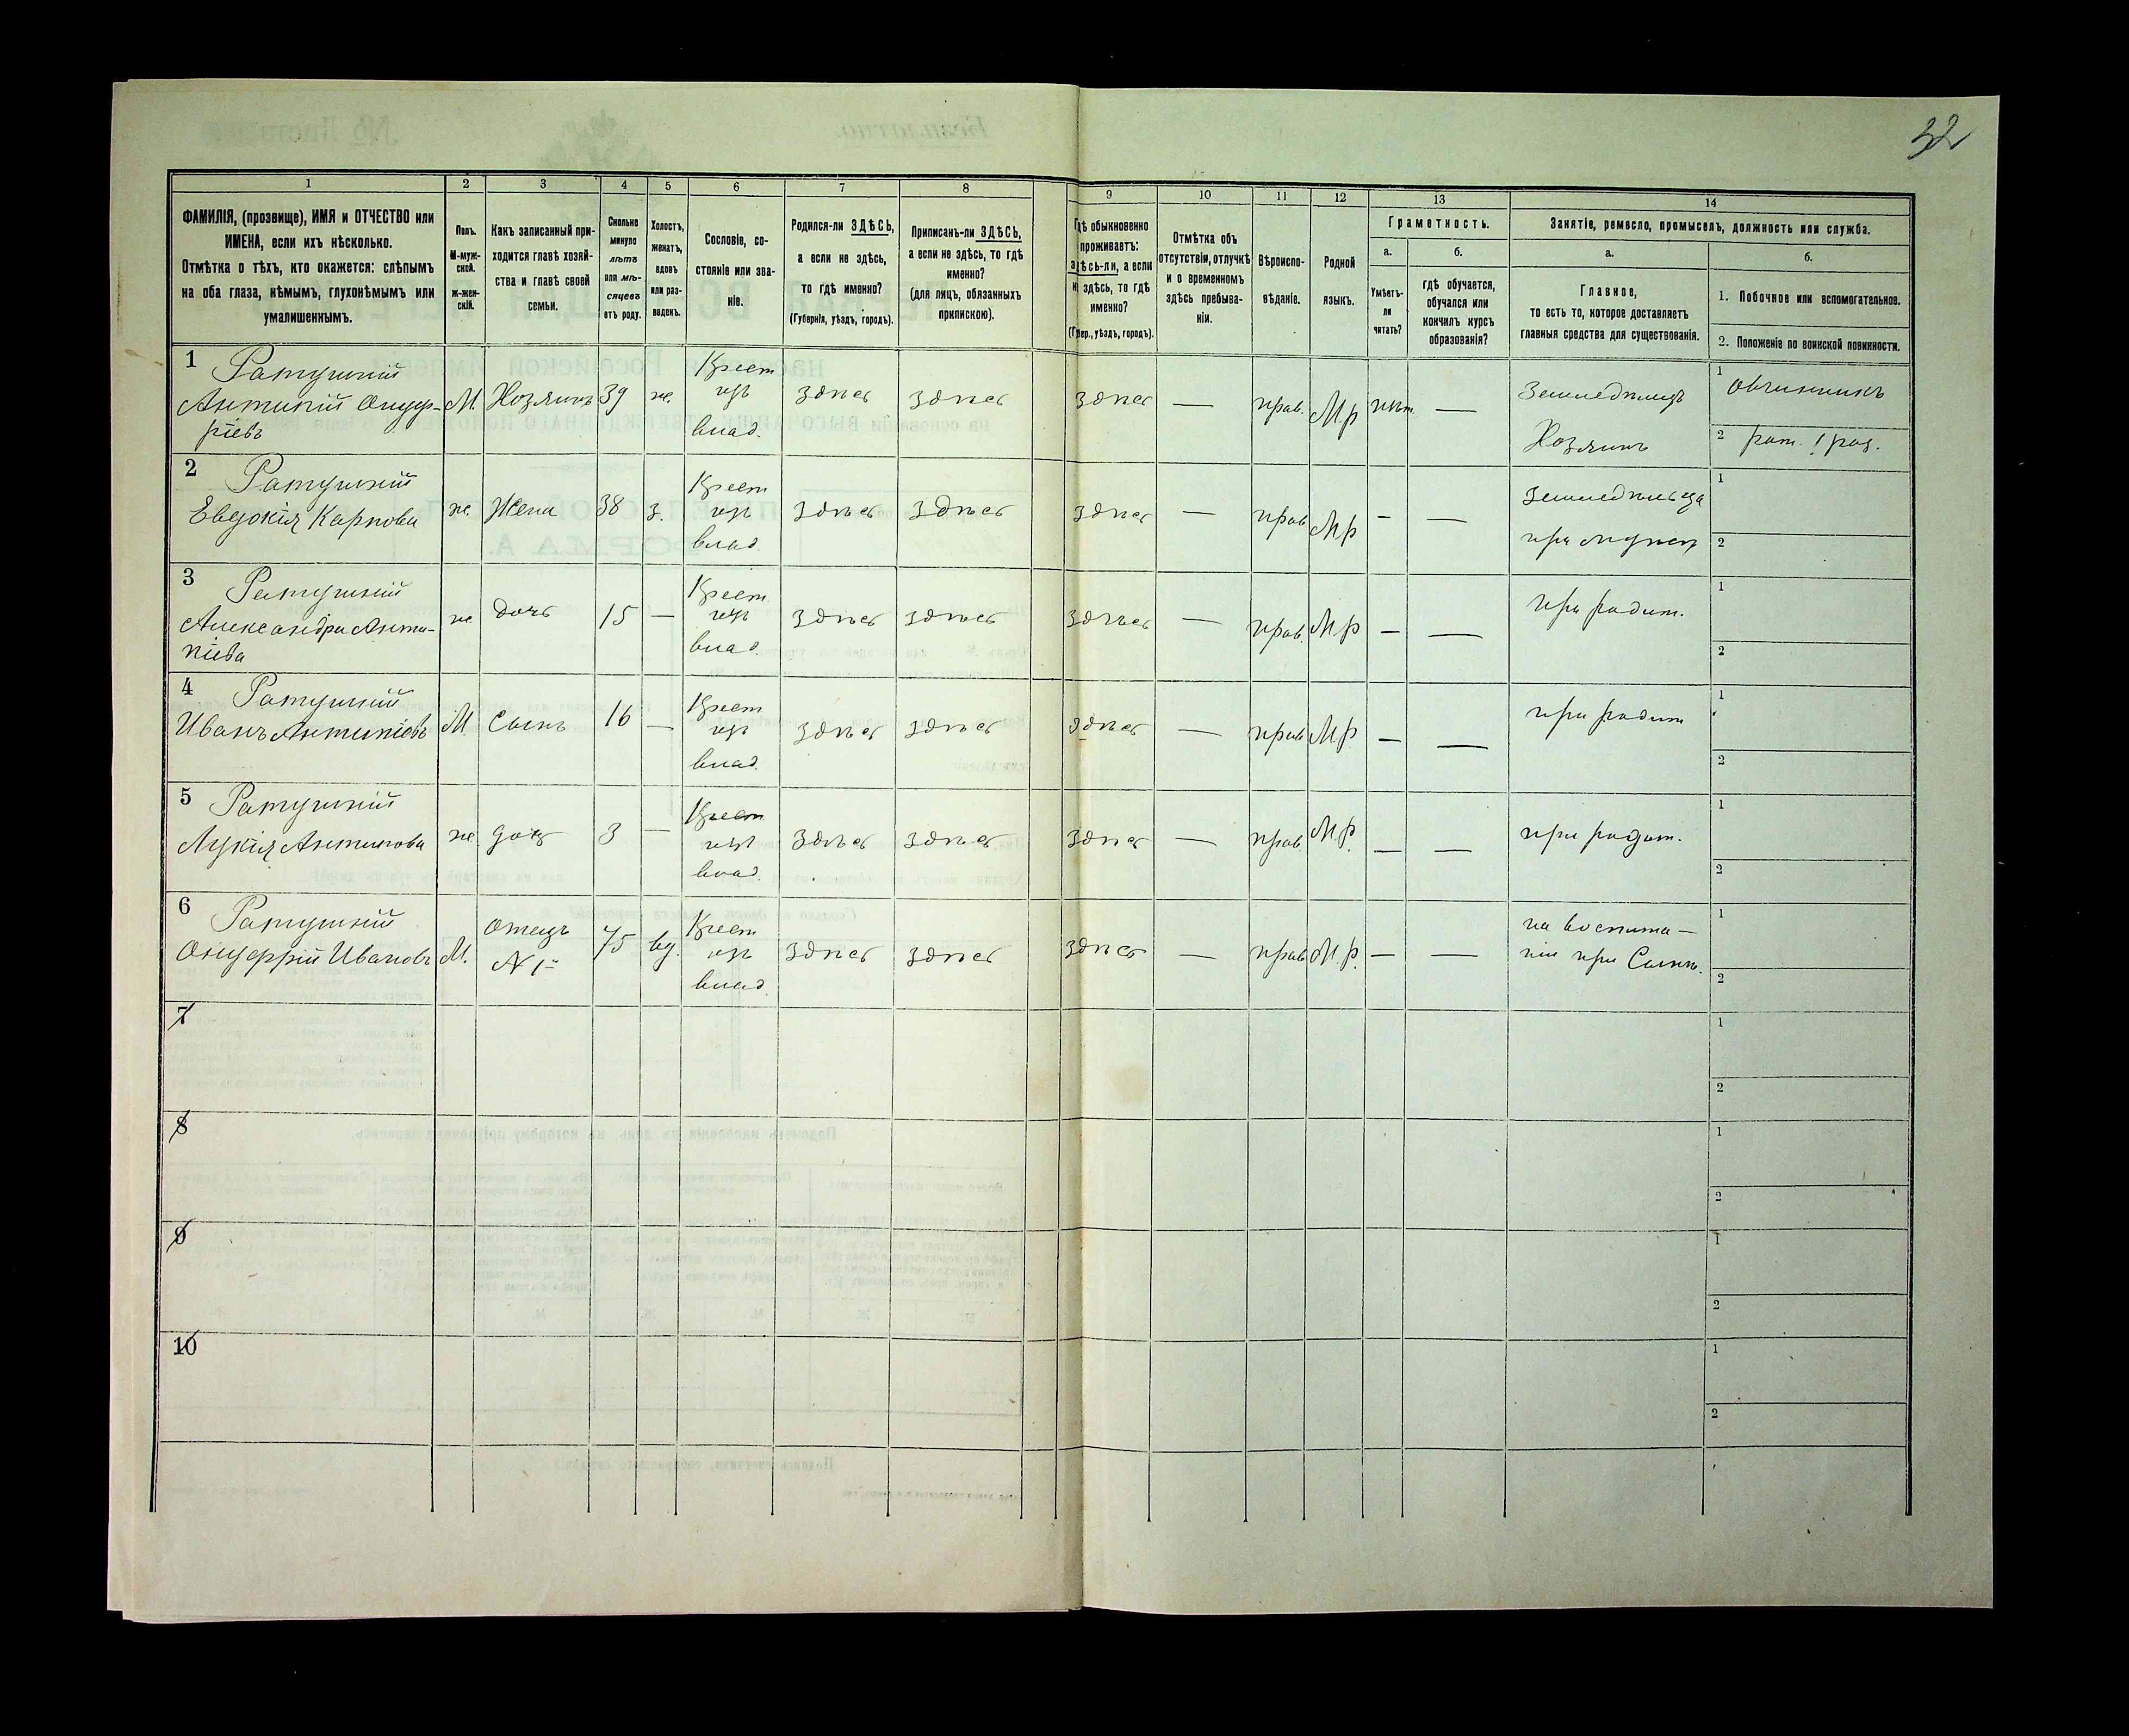 32
1 2 3 4 5 6 7 8 9 10 11 12 13 14
ФАМИЛІЯ, (прозвище), ИМЯ и ОТЧЕСТВО или
ИМЕНА, если ихъ нѣсколько.
Отмѣтка о тѣхъ, кто окажется: слѣпымъ
на оба глаза, нѣмымъ, глухонѣмымъ или
умалишеннымъ.
Полъ.
М-муж-
ской.
ж-жен-
скій.
Какъ записанный при-
ходится главѣ хозяй-
ства и главѣ своей
семьи.
Сколько
минуло
лѣтъ
или мѣ-
сяцевъ
отъ роду.
Холостъ,
женатъ,
вдовъ
или раз-
веденъ.
Сословіе, со-
стояніе или зва-
ніе.
Родился-ли ЗДѢСЬ,
а если не здѣсь,
то гдѣ именно?
(Губернія, уѣздъ, городъ).
Приписанъ-ли ЗДѢСЬ,
а если не здѣсь, то гдѣ
именно?
(для лицъ, обязанныхъ
припискою).
Гдѣ обыкновенно
проживаетъ:
здѣсь-ли, а если
не здѣсь, то гдѣ
именно?
(Губер., уѣздъ, городъ).
Отмѣтка объ
отсутствіи, отлучкѣ
и о временномъ
здѣсь пребыва-
ніи.
Вѣроиспо-
вѣданіе.
Родной
языкъ.
Грамотность.
а.
Умѣетъ-
ли
читать?
б.
гдѣ обучается,
обучался или
кончилъ курсъ
образованія?
Занятіе, ремесло, промыселъ, должность или служба.
а.
Главное,
то есть то, которое доставляетъ
главныя средства для существованія.
б.
1. Побочное или вспомогательное.
2. Положеніе по воинской повинности.
1 Ратушній
Антипій Онуф-
ріевъ
М. Хозяинъ 39 ж.
Крест
изъ
влад.
здѣсь здѣсь здѣсь — прав. М.р нѣт —
Земледѣлецъ
Хозяинъ
1 овчинникъ
2 рат. 1 раз.
2 Ратушній
Евдокія Карпова
ж. Жена 38 з.
Крест
изъ
влад.
здѣсь здѣсь здѣсь — прав М р — —
земледѣльца
при мужѣ
1
2
3 Ратушній
Александра Анти-
піева
ж дочь 15 —
Крест
изъ
влад.
здѣсь здѣсь здѣсь — прав. М р — —
при родит.
1
2
4 Ратушній
Иванъ Антипіевъ
М Сынъ 16 —
Крест
изъ
влад.
здѣсь здѣсь здѣсь — прав М р. — —
при родит
1
2
5 Ратушній
Лукія Антипова
ж. доч 3 —
Крест
изъ
влад.
здѣсь здѣсь здѣсь — прав М.р. — —
при родит.
1
2
6 Ратушній
Онуфрій Ивановъ
М.
Отецъ
№ 1
75 вд.
Крест
изъ
влад.
здѣсь здѣсь здѣсь — прав М. р. — —
на воспита-
ніи при Сынѣ.
1
2
7
1
2
8
1
2
9
1
2
10
1
2